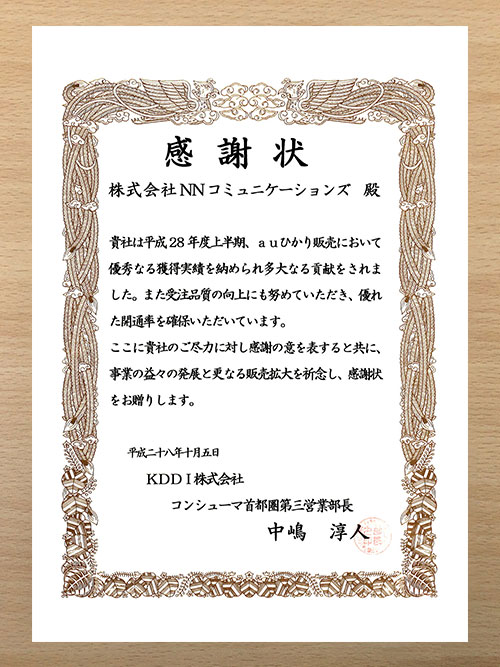 感謝状
株式会社NNコミュニケーションズ 殿
貴社は平成28年度上半期、auひかり販売において
優秀なる獲得実績を納められ多大なる貢献をされま
した。また受注品質の向上にも努めていただき、優れ
た開通率を確保いただいています。
ここに貴社のご尽力に対し感謝の意を表すると共に、
事業の益々の発展と更なる販売拡大を祈念し、感謝状
をお贈りします。
平成二十八年十月五日
KDDI株式会社
コンシューマ首都圏第三営業部長
中嶋 淳人